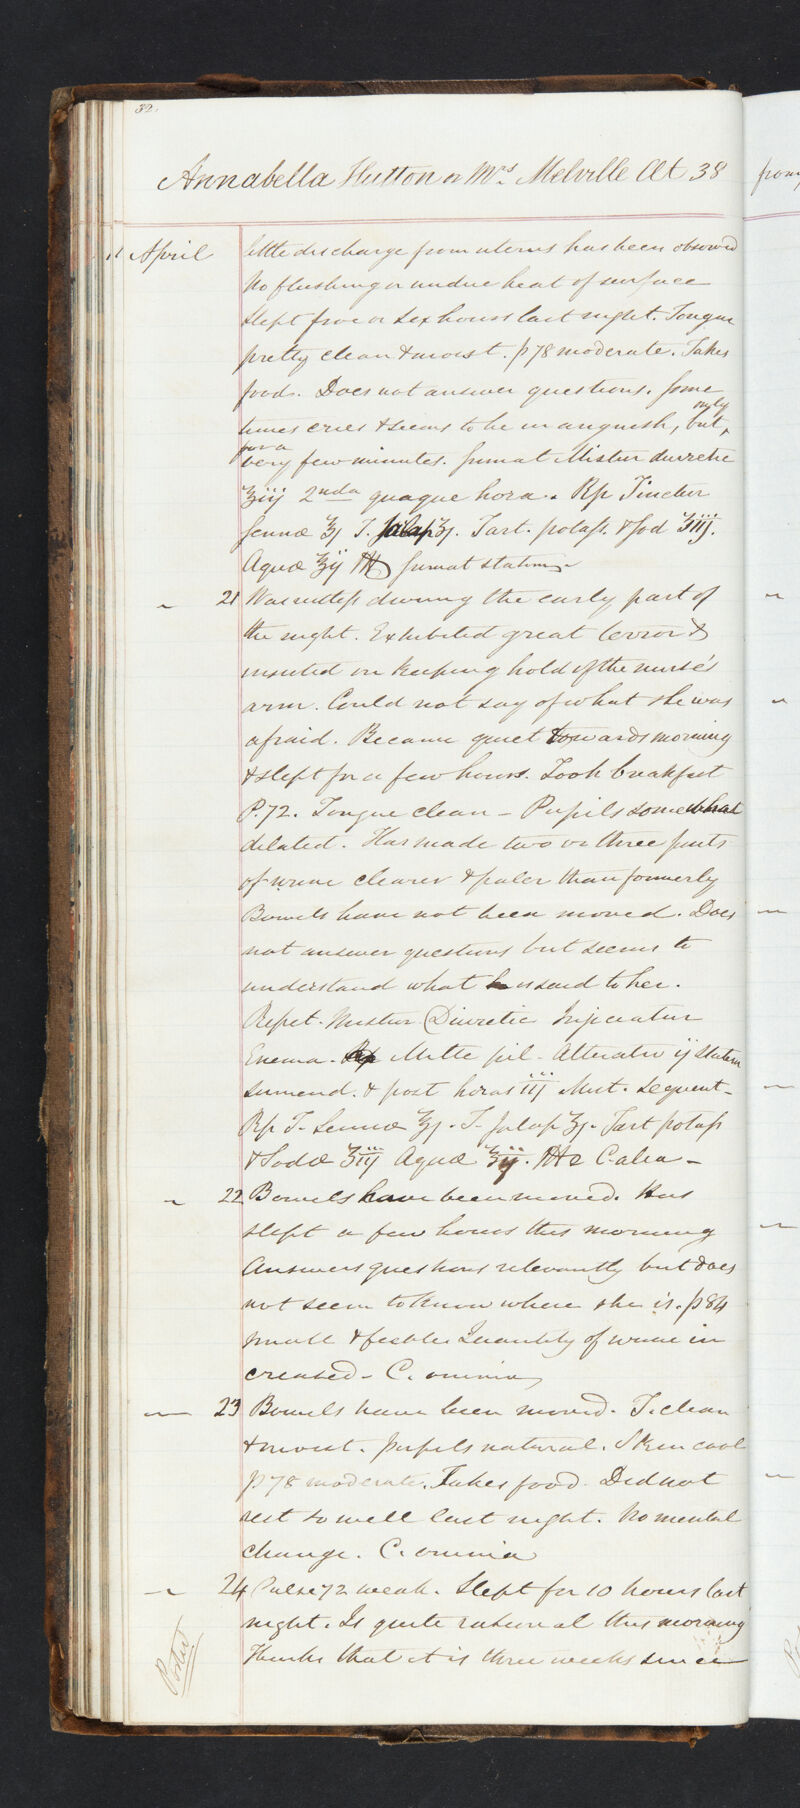 32.
Annabella Hutton or Mrs Melville Æt 38
from
April little discharge from uterus has been observed
No flushing or undue heat of surface
Slept five or six hours last night. Tongue
pretty clean & moist. p 78 moderate. Takes
food. Does not answer questions. Some
times cries & seems to be in anguish, but only
for a very few minutes. Sumat Mistur diuretic
℥iij 2nda quaque hora. Rp Tinctur
Sennæ ʒj T. Jalap ʒj. Tart. potass. & Sod ʒiij.
Aquæ ℥ij M sumat statim
21 Was restless during the early part of
the night. Exhibited great terror &
insisted on keeping hold of the nurse's
arm. Could not say of what she was
afraid. Became quiet towards morning
& slept for a few hours. Took breakfast
P. 72. Tongue clean - Pupils somewhat
dilated. Has made two or three pints
of urine clearer & paler than formerly
Bowels have not been moved. Does
not answer questions but seems to
understand what is said to her.
Repet. Mistur Diuretic Injiciatur
Enema. Mitte pil. Alterativ ij statim
sumend. & post horas iij Mist. Sequent-
Rp T. Sennæ ʒj. T. Jalap ʒj. Tart potass
& Sodæ ʒiij Aquæ ℥ij. M
22 Bowels have been moved. Has
slept a few hours this morning
Answers questions relevantly but does
not seem to know where she is. p 84
small & feeble. Quantity of urine in
creased - C. omnia
23 Bowels have been moved. T. clean
& moist. pupils natural. Skin cool
p 78 moderate. Takes food. Did not
rest so well last night. No mental
change. C. omnia
24 Pulse 72 weak. Slept for 10 hours last
night. Is quite rational this morning
Thinks that it is three weeks since
Posted